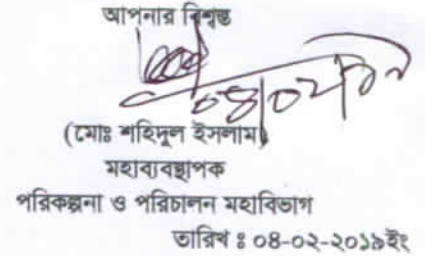 আপনার বিশ্বস্ত
(মোঃ শহিদুল ইসলাম)
মহাব্যবস্থাপক
পরিকল্পনা ও পরিচালন মহাবিভাগ
তারিখ ঃ ০৪-০২-২০১৯ইং